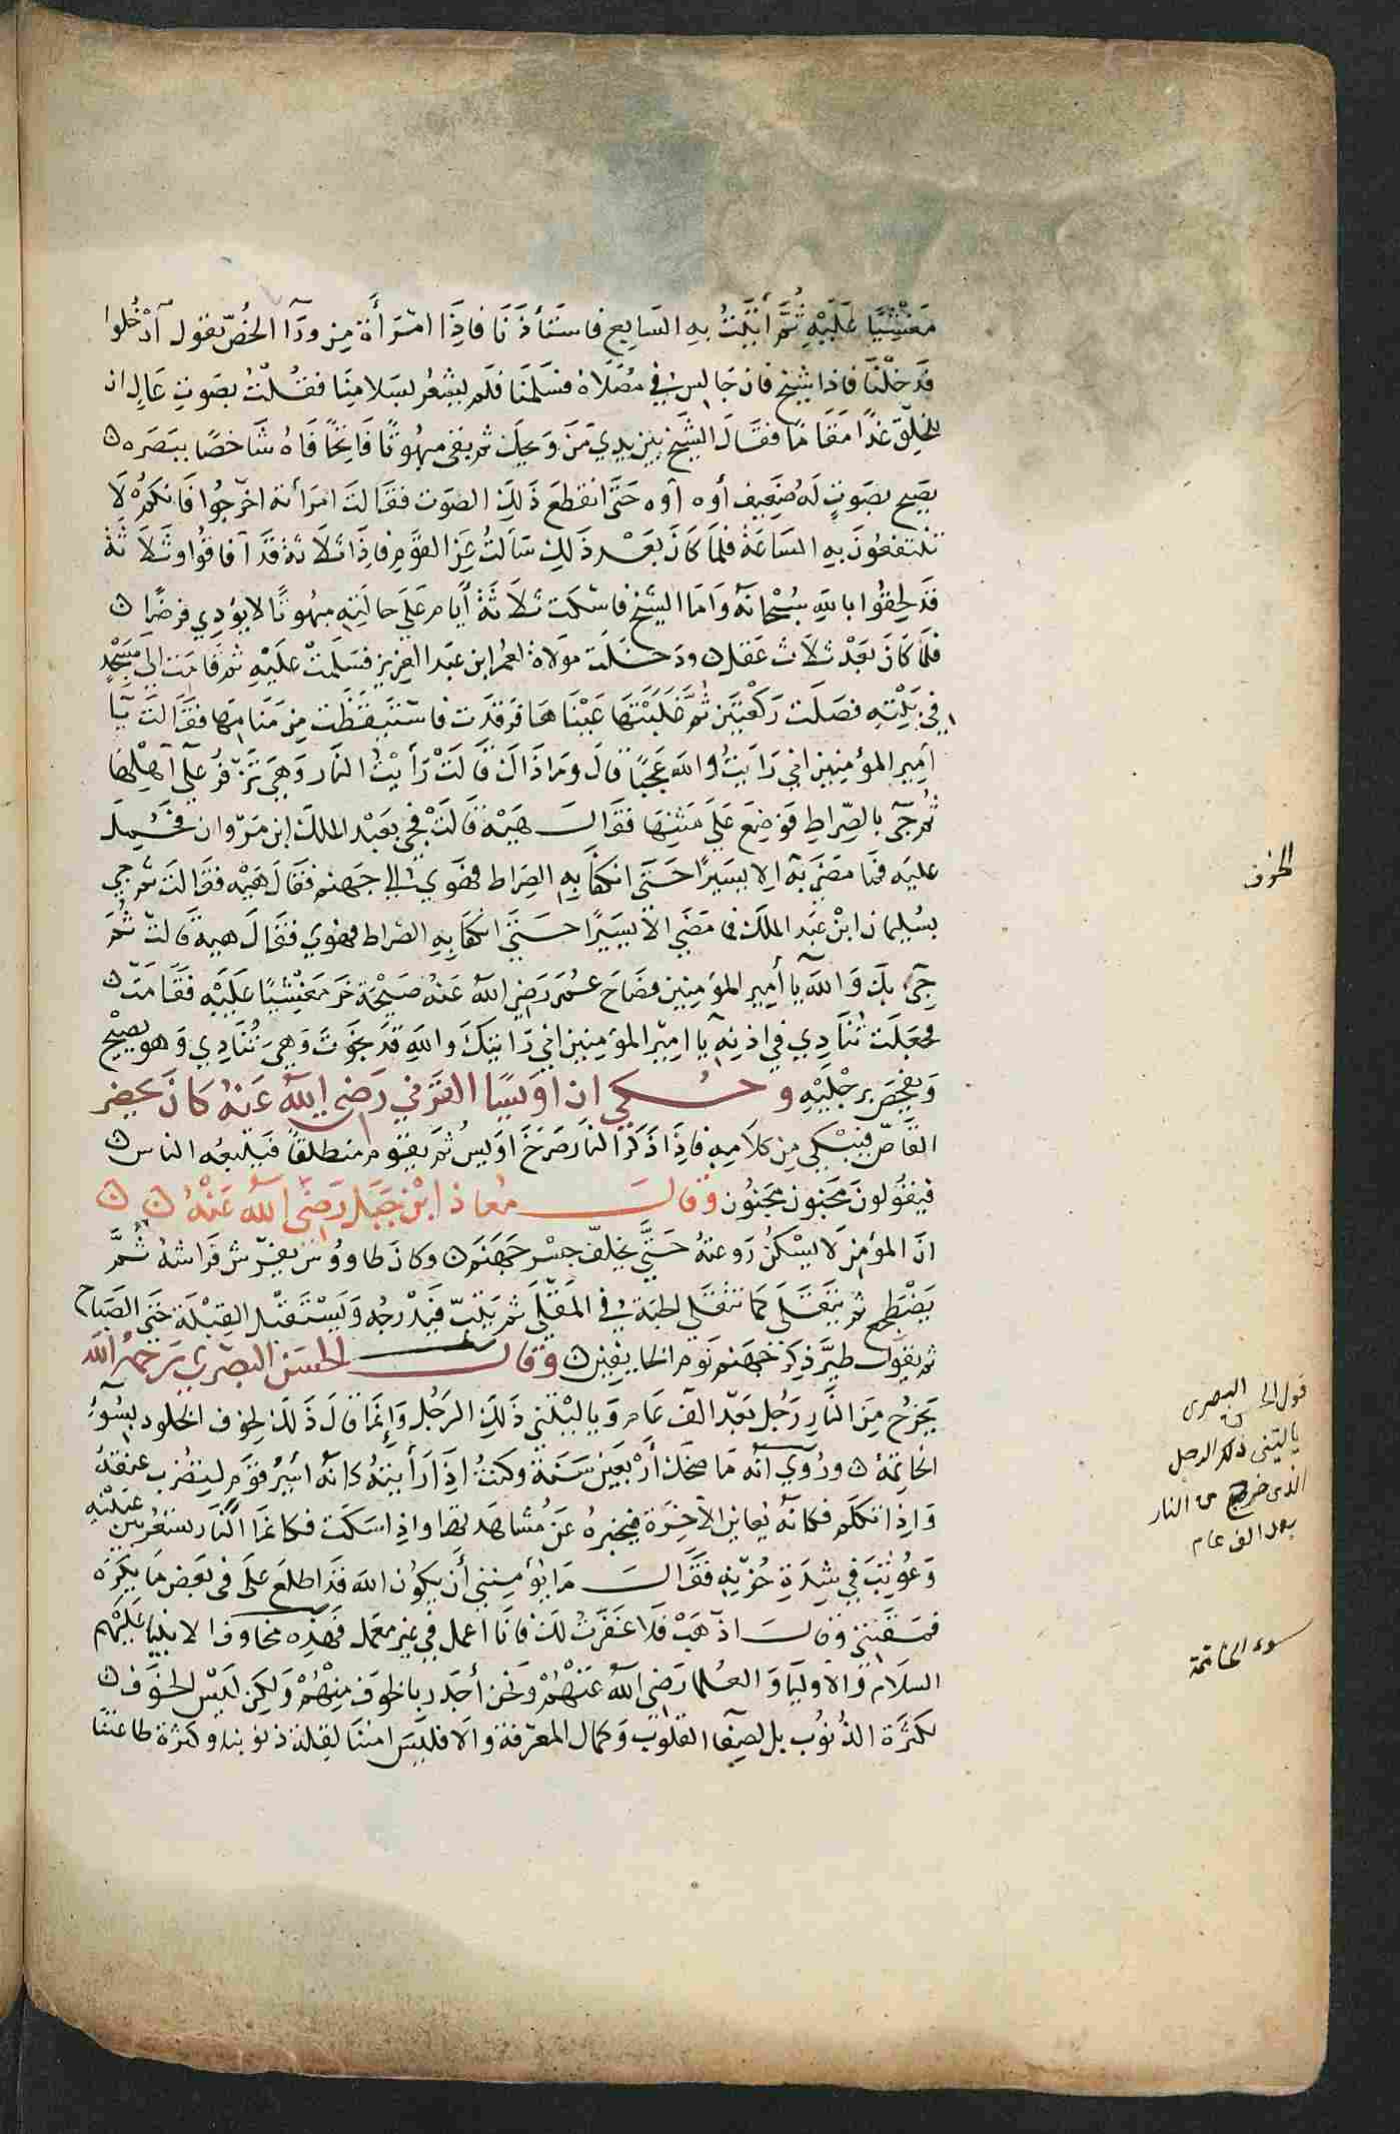 مَغْشِيًّا عَلَيْهِ ثُمَّ أتَيْتُ بِهِ السَابِع فاستَأذَنَّا فاِذَا امْرَأَة مِن ورَآ الخُصّ تقول ادْخُلوا
فدَخلْنَا فاذا شَيخ فانٍ جَالِس في مُصَلّاه فسَلّمنَا فلَم يشعُر بسَلامِنَا فقُلْتُ بصَوتٍ عَالٍ ان
للخلق غَدًا مَقَامًا فقَالَ الشيَّخ بيْن يَدي مَن وَيحَك ثم بقى مبهُوتًا فاتحًا فَاهُ شَاخصًا ببَصَره ن
يصَيح بصَوتٍ لَه ضَعِيف أوه أوه حَتَّى انقطعَ ذَلِك الصَوت فقَالت امرَأته اخرجُوا فَانكمُ لَا
تنتفعُونَ بهِ السَاعَة فلمَا كَانَ بَعْد ذَلِك سَألتُ عَن القَوم فاِذَا ثلَاثَة قَد آفاقُوا وثَلَاثَة
قد لحقُوا بالله سُبْحَانَه وَاما الشيخ فاسْكت ثلَاثَة أيَام عَلى حالتهِ مبهُوتًا لا يؤدي فرضًا ن
فلَمّا كَانَ بَعْدْ ثلَاث عَقل ن ودَخلت مَولَاة لعُمَر ابن عَبد العزيز فسَلمتْ علَيْهِ ثم قَامَت الى مَسْجِدٍ
في بَيْتِهِ فصَلت رَكعْتَين ثُمَّ غلَبَتْهَا عَيْنَاهَا فرَقدَت فاستَيقظَت مِن مَنَامِهَا فقَالت يَآ
امِير المؤمنِين اني رَايتُ والله عَجبًا قالَ ومَا ذَاك قَالَتْ رَأيْتُ النَار وَهِيَ تَزفرُ عَلَى آهْلِهَا
ثُم جىَّ بالصِّراطِ فوُضِعَ عَلَى مَتْنِهَا فقَالَ هِيْه قَالَتْ فجي بعَبْد الملك ابن مَرّوان فحُمِلَ
عليَه فمَا مضَى به الا يَسَيرًا حَتَى انكفَا بهِ الصِرَاط فهَوي الى جهنم فقَالَ هِيْه فقَالتْ ثم جي
بسُليمان ابْن عَبد المَلك فما مَضَى الا يَسيَرًا حَتَّى انكفَا بهِ الصِراط فهوي فقَالَ هيه قَالَتْ ثُمَّ
جِىَ بكَ وَاللهَ يا أمِير المؤمِنِين فصَاحَ عُمَر رَضي اللهُ عَنهُ صَيْحَة خَر مَغْشِيًا عَلَيْهِ فقَامَتْ
فجعَلَت تُنَادِي في اذنِه يَا امِيَر المؤمِنِين اني رَايتكَ واللهِ قَد نجَوْتَ وَهىَ تُنَادِي وَهو يصيْح
وَيفحَصَ برجْليْهِ وحُكي ان اوَيسًا القَرَني رَضِي اللهُ عَنهُ كانَ يحضر
القَاصّ فيَبْكي مِن كلَامهِ فاِذَا ذَكرَ النَارَ صَرَخَ اوَيسُ ثمَ يقوُم مُنطلقًا فيَتبعُه الناس ن
فيقُولونَ مَجنون مَجنُون وقال مُعاذ ابْن جَبَل رَضَى اللهُ عَنْهُ ن ن
انَّ المؤمِن لَا يسْكنُ رَوعتهُ حَتَّى يخلفّ جسْر جَهَنَم ن وكانَ طاووُس يفرِش فرَاشهُ ثُمَّ
يَضْطَجع ثم يَتَقلَى كمَا تتقلَى الحَبة في المَقْلَى ثم يَثِبّ فيَدْرجُه وَيَسْتَقبْل القِبْلَة حَتى الصَباح
ثم يقول طيَّر ذكر جهنم نوم الخايفِين ن وقال الحَسَن البصري رَحِمهُ الله
يَخرُج مِنَ النَّارِ رَجُل بَعْد الف عَام وَيا ليْتَني ذَلِك الرَجُل وَاِنَّمَا قالَ ذَلكَ لِخوف الخلود بسُوءِ
الخاتمَة ن ورُوي انَه مَا ضحكَ أرْبعَين سَنَة وكنتُ اِذَا رَأيتهُ كانَهُ أسَيُر قدم لِيضرب عنقهُ
وَاذِا تكلَم فكانَهُ يُعَاين الآخِرَة فيخبرُ عَن مُشَاهَدَتهَا واذِا سَكَت فكانمَا النَّار تستعر بيْن عَيْنيْهِ
وَعُوتِبَ في شِدَّةِ حُزنِه فقَالَ مَا يُؤمِنني أن يكُون الله قَد اطلعَ علىَّ فى بَعض مَا يكَرَه
فمَقَتَني وقال اذْهَبْ فلَا غفَرتُ لَك فانَا اعمل في غير مَعْمل فهَذه مخاوف الانبيَا عَلَيْهم
السَلَام وَالاوليَا وَ العُلمَا رَضي اللهُ عَنْهُمْ وَنحن أجْدَر بالخوف مِنْهُمْ وَلكن ليْس الخَوف ن
بكثرَة الذُنُوب بل لصَفا القلُوب وكمال المعَرفة والا فليَس امننَا لقِلة ذنوبنا وكثرة طاعتنا
الخوف
قول الحسن البصرى
ياليتنى ذلك الرجل
الذى خرج من النار
بعد الف عام
سوء الخاتمة